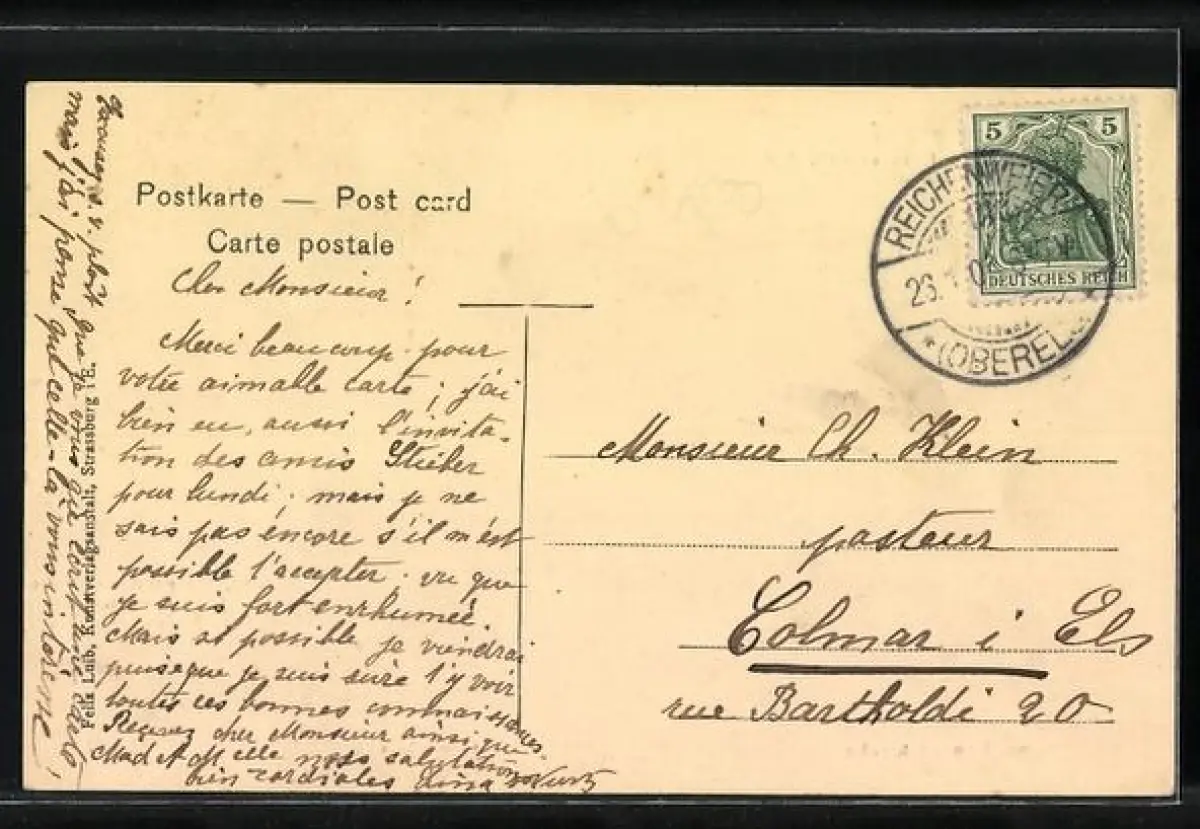 Postkarte — Post card
Carte postale
Cher Monsieur!
Merci beaucoup pour
votre aimable carte; j'ai
bien eu, aussi l'invita-
tion des amis Stieber
pour lundi; mais je ne
sais pas encore s'il m'est
possible l'accepter, vu que
je suis fort enrhumée.
Mais si possible je viendrai
puisque je suis sûre l'y voir
toutes ces bonnes connaissances
Recevez cher Monsieur ainsi que
Mad et Mselle nos salutations
bien cordiales Kurtz
v. plait que je vous ai écrit une carte,
mais j'ai pensé que celle-là vous intéresse,
Felix Luib, Kunstverlagsanstalt, Strassburg i E.
5 5
DEUTSCHES REICH
REICHENWEIER
26.
(OBEREL
Monsieur Ch. Klein
pasteur
Colmar i Els
rue Bartholdi 20